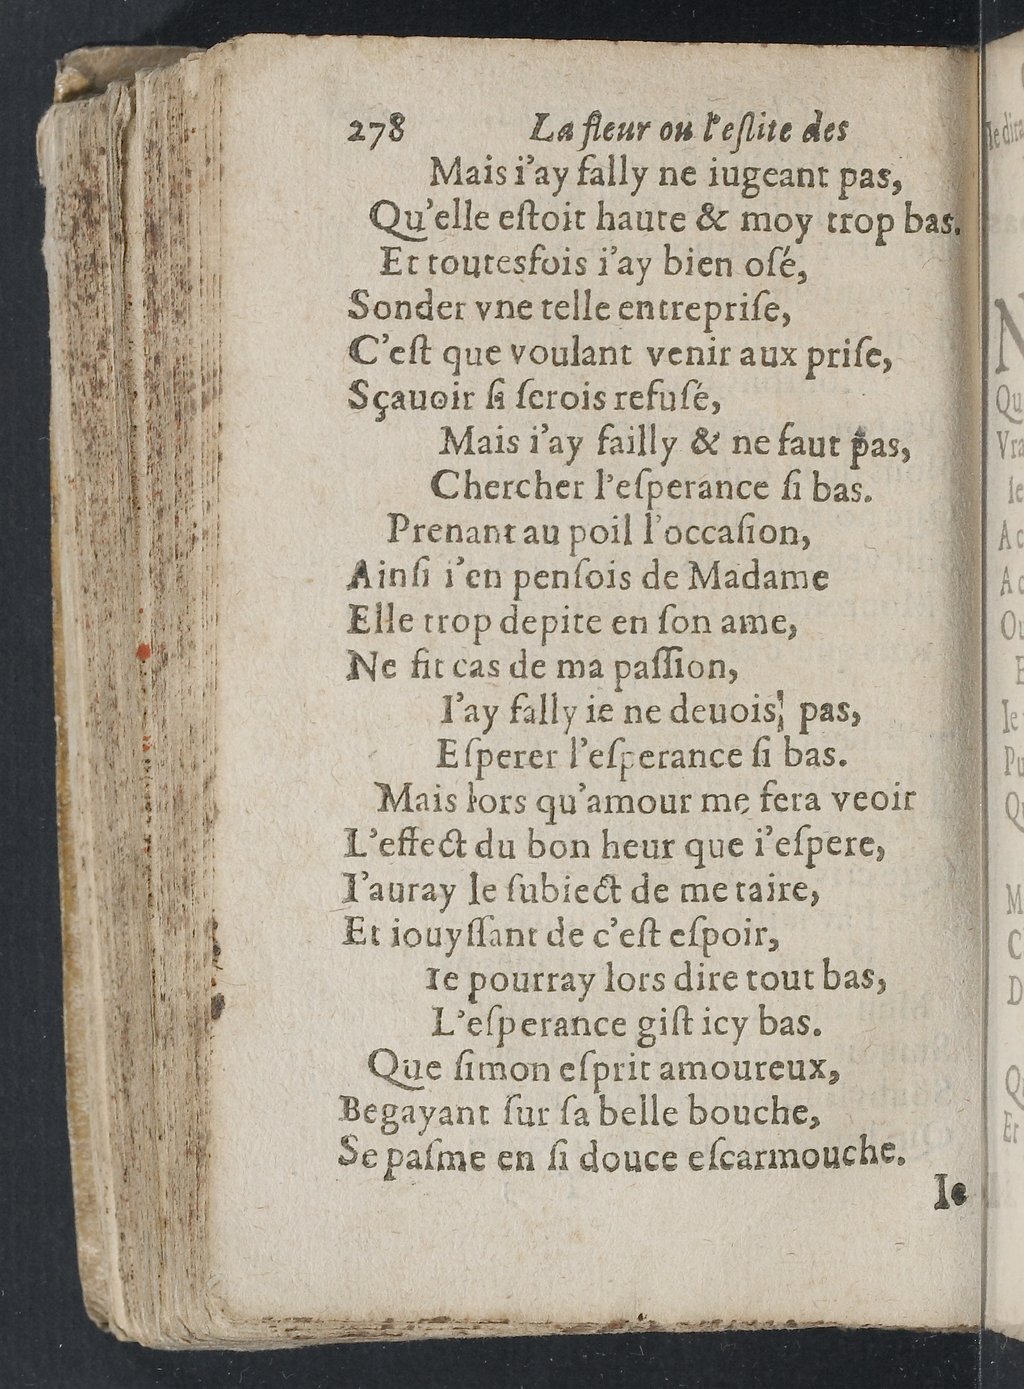 278 La fleur ou l'eſlite des
Mais i'ay fally ne iugeant pas,
Qu'elle eſtoit haute & moy trop bas.
Et toutesfois i'ay bien oſé,
Sonder vne telle entrepriſe,
C'eſt que voulant venir aux priſe,
Sçauoir ſi ſerois refuſé,
Mais i'ay failly & ne faut pas,
Chercher l'eſperance ſi bas.
Prenant au poil l'occaſion,
Ainſi i'en penſois de Madame
Elle trop depite en ſon ame,
Ne fit cas de ma paſſion,
I'ay fally ie ne deuois pas,
Eſperer l'eſperance ſi bas.
Mais lors qu'amour me fera veoir
L'effect du bon heur que i'eſpere,
I'auray le ſubiect de me taire,
Et iouyſſant de c'eſt eſpoir,
Ie pourray lors dire tout bas,
L'eſperance giſt icy bas.
Que ſi mon eſprit amoureux,
Begayant ſur ſa belle bouche,
Se paſme en ſi douce eſcarmouche.
Ie